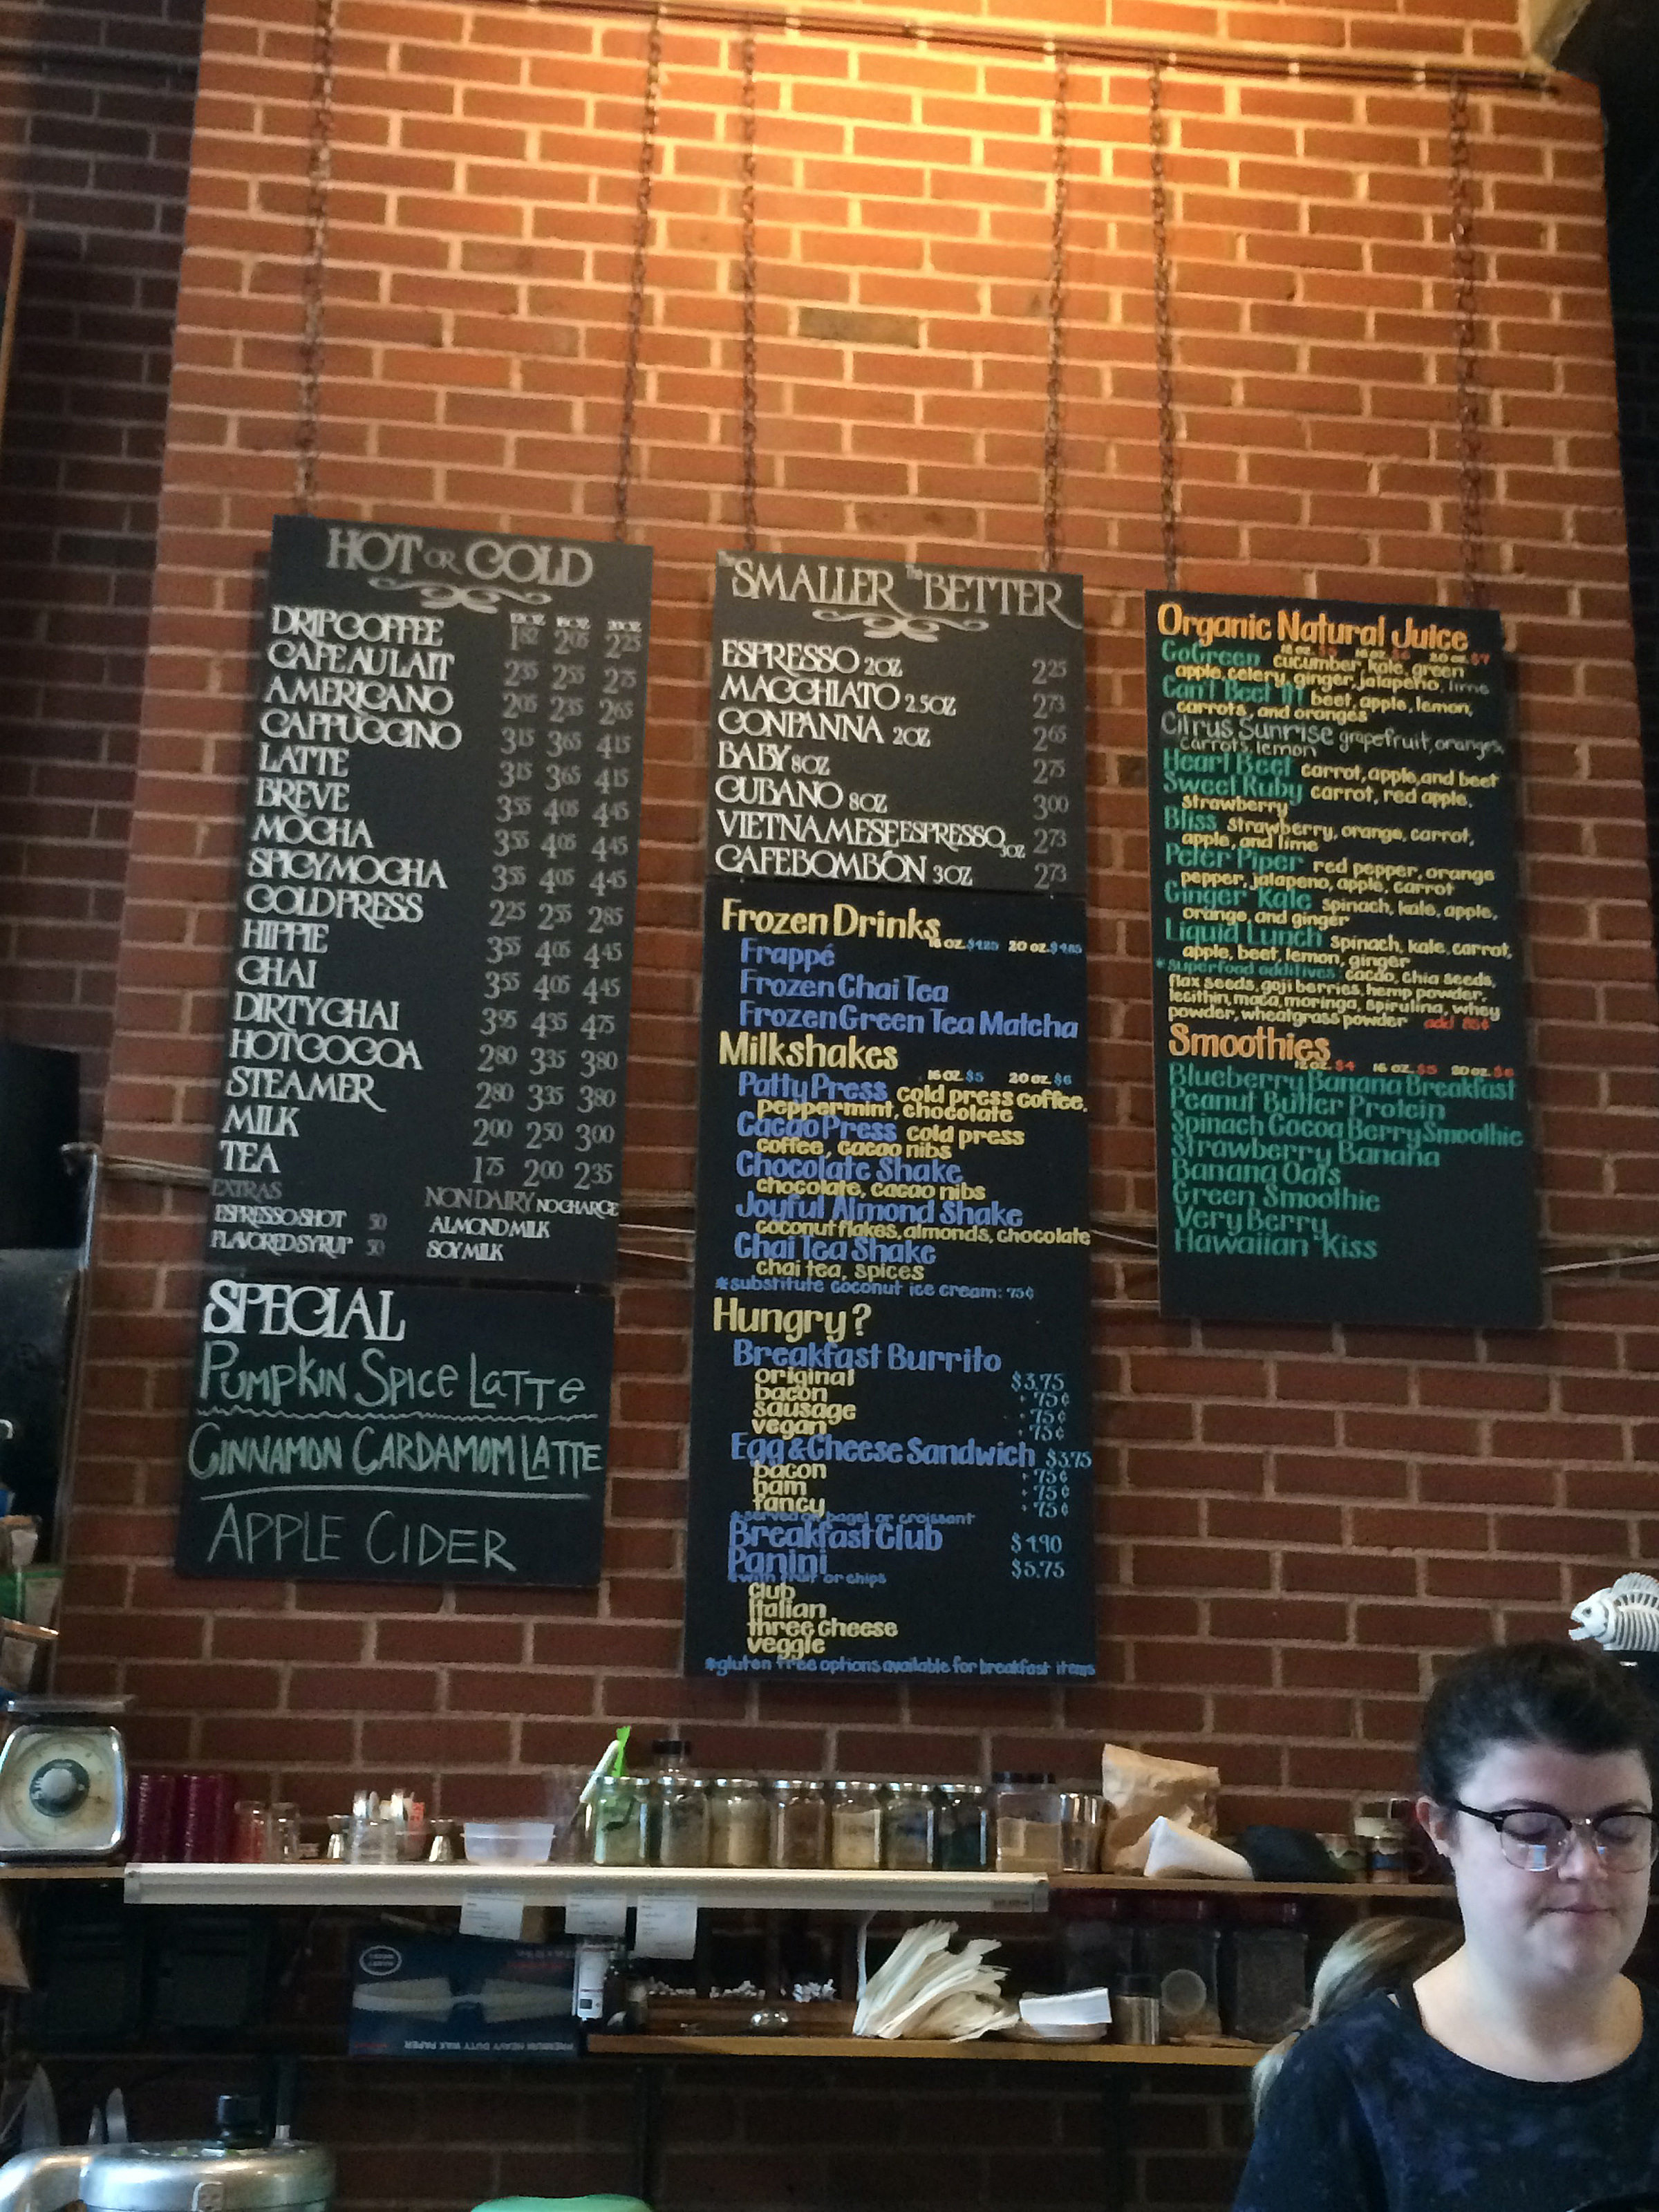 HOT OR COLD
12OZ 16OZ 20OZ
DRIP COFFEE 1.82 2.05 2.25
CAFE AU LAIT 2.35 2.55 2.75
AMERICANO 2.05 2.35 2.65
CAPPUCCINO 3.15 3.65 4.15
LATTE 3.15 3.65 4.15
BREVE 3.55 4.05 4.45
MOCHA 3.55 4.05 4.45
SPICY MOCHA 3.55 4.05 4.45
COLD PRESS 2.25 2.55 2.85
HIPPIE 3.55 4.05 4.45
CHAI 3.55 4.05 4.45
DIRTY CHAI 3.95 4.35 4.75
HOT COCOA 2.80 3.35 3.80
STEAMER 2.80 3.35 3.80
MILK 2.00 2.50 3.00
TEA 1.75 2.00 2.35
EXTRAS NON DAIRY NO CHARGE
ESPRESSO SHOT 50 ALMOND MILK
FLAVORED SYRUP 50 SOY MILK
SPECIAL
PUMPKIN SPICE LATTE
CINNAMON CARDAMOM LATTE
APPLE CIDER
THE SMALLER THE BETTER
ESPRESSO 2OZ 2.25
MACCHIATO 2.5OZ 2.73
CONPANNA 2OZ 2.65
BABY 8OZ 2.75
CUBANO 8OZ 3.00
VIETNAMESE ESPRESSO 3OZ 2.73
CAFE BOMBÓN 3OZ 2.73
Frozen Drinks
16 oz. $4.25 20 oz. $4.85
Frappé
Frozen Chai Tea
Frozen Green Tea Matcha
Milkshakes
16 oz. $5 20 oz. $6
Patty Press cold press coffee,
peppermint, chocolate
Cacao Press cold press
coffee, cacao nibs
Chocolate Shake
chocolate, cacao nibs
Joyful Almond Shake
coconut flakes, almonds, chocolate
Chai Tea Shake
chai tea, spices
*substitute coconut ice cream: 75¢
Hungry?
Breakfast Burrito
original $3.75
bacon + 75¢
sausage + 75¢
vegan + 75¢
Egg & Cheese Sandwich $3.75
bacon + 75¢
ham + 75¢
fancy + 75¢
*served on bagel or croissant
Breakfast Club $4.90
Panini $5.75
*with fruit or chips
club
italian
three cheese
veggie
*gluten free options available for breakfast items
Organic Natural Juice
12 oz. $5 16 oz. $6 20 oz. $7
Go Green cucumber, kale, green
apple, celery, ginger, jalapeño, lime
Can't Beet It! beet, apple, lemon,
carrots, and oranges
Citrus Sunrise grapefruit, oranges,
carrots, lemon
Heart Beet carrot, apple, and beet
Sweet Ruby carrot, red apple,
strawberry
Bliss strawberry, orange, carrot,
apple, and lime
Peter Piper red pepper, orange
pepper, jalapeno, apple, carrot
Ginger Kale spinach, kale, apple,
orange, and ginger
Liquid Lunch spinach, kale, carrot,
apple, beet, lemon, ginger
*superfood additives: cacao, chia seeds,
flax seeds, goji berries, hemp powder,
lecithin, maca, moringa, spirulina, whey
powder, wheatgrass powder add 85¢
Smoothies
12 oz. $4 16 oz. $5 20 oz. $6
Blueberry Banana Breakfast
Peanut Butter Protein
Spinach Cocoa Berry Smoothie
Strawberry Banana
Banana Oats
Green Smoothie
Very Berry
Hawaiian Kiss
PREMIUM HEAVY DUTY WAX PAPER